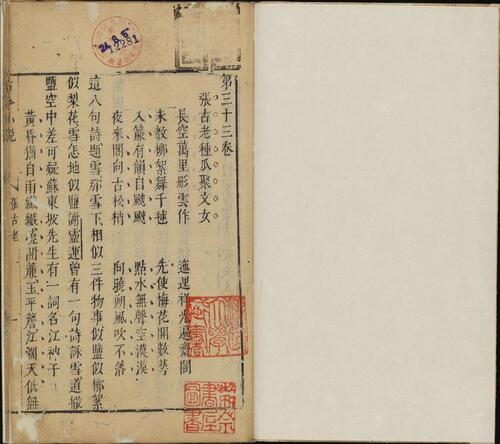 第三十三卷
張古老種瓜娶文女
長空萬里彤雲作　迤邐祥光遍齋閣
未教柳絮舞千毬　先使梅花開數萼
入簾有韻自颼颼　點水無聲空漠漠
夜來閣向古松梢　向曉朔風吹不落
這八句詩題雪那雪下相似三件物事似鹽似柳絮
似梨花雪怎地似鹽謝靈運曾有一句詩詠雪道撒
鹽空中差可疑蘇東坡先生有一詞名江神子
黃昏猶自雨纖纖曉開簾玉平簷江濶天低無
張古老
12281